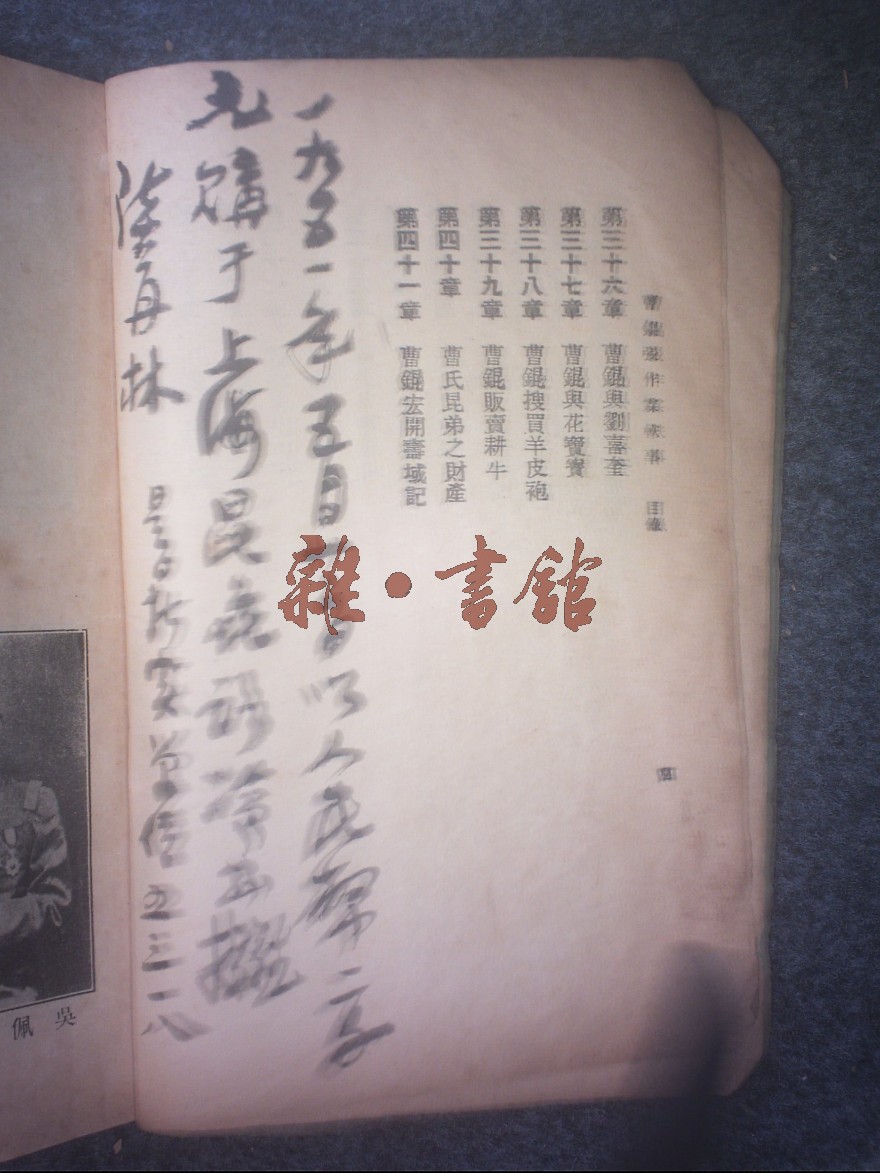 曹錕張作霖軼事 目錄
第三十六章 曹錕與劉喜奎
第三十七章 曹錕與花寶寶
第三十八章 曹錕搜買羊皮袍
第三十九章 曹錕販賣耕牛
第四十章 曹氏昆弟之財產
第四十一章 曹錕宏開壽域記
四
一九五一年五月 日以人民幣二千
元購于上海 路冷書攤
陸丹林
是日折實單位五三一八
雜·書館
吳佩